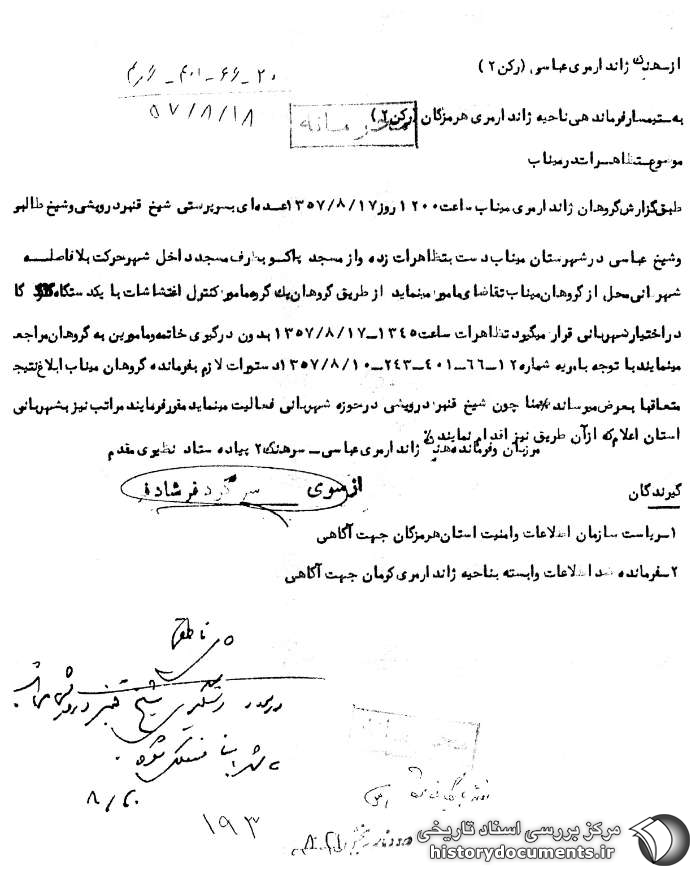 از هنگ ژاندارمری عباسی (رکن ۲)
۲۰-۶۶-۴۰۱
۵۷/۸/۱۸
به تیمسار فرماندهی ناحیه ژاندارمری هرمزگان (رکن ۲)
محرمانه
موضوع تظاهرات در میناب
طبق گزارش گروهان ژاندارمری میناب ساعت ۱۲۰۰ روز ۱۳۵۷/۸/۱۷ عده‌ای بسرپرستی شیخ قنبر درویشی و شیخ طالبو
و شیخ عباسی در شهرستان میناب دست بتظاهرات زده و از مسجد پاکسو بطرف مسجد داخل شهر حرکت بلافاصلـــه
شهربانی محل از گروهان میناب تقاضای مامور مینماید از طریق گروهان یک گروه مامور کنترل اغتشاشات با یکدستگاه
در اختیار شهربانی قرار میگیرد تظاهرات ساعت ۱۳۴۵ــ۱۳۵۷/۸/۱۷ بدون درگیری خاتمه و مامورین به گروهان مراجعـ
مینمایند با توجه بامریه شماره ۱۲ــ۶۶ــ۴۰۱ــ۲۴۳ــ۱۳۵۷/۸/۱۰ دستورات لازم بفرمانده گروهان میناب ابلاغ نتیجـ
متعاقبا بعرض میرساند ضمنا چون شیخ قنبر درویشی در حوزه شهربانی فعالیت مینماید مقرر فرمایند مراتب نیز بشهربانی
استان اعلام که از آن طریق نیز اقدام نمایند
مرزبان و فرمانده هنگ ژاندارمری عباسی ــ سرهنگ ۲ پیاده ستاد نظیری مقدم
از سوی سرگرد فرشادفر
گیرندگان
۱ــریاست سازمان اطلاعات و امنیت استان هرمزگان جهت آگاهی
۲ــفرمانده ضد اطلاعات وابسته بناحیه ژاندارمری کرمان جهت آگاهی
شیخ قنبر درویشی
۸/۲۰
۱۹۳
مرکز بررسی اسناد تاریخی
historydocuments.ir